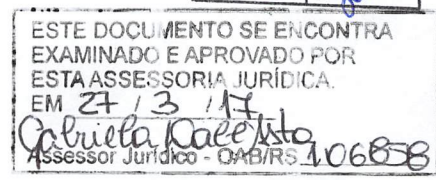 ESTE DOCUMENTO SE ENCONTRA
EXAMINADO E APROVADO POR
ESTA ASSESSORIA JURÍDICA.
EM 27 / 3 / 17
Gabriela
Assessor Jurídico - OAB/RS 106858